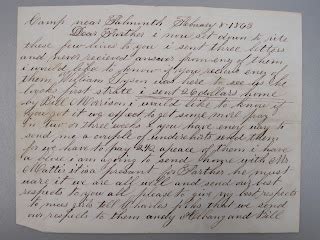 Camp near Falmouth February 8 1863
Dear Farther i now set down to rite
these few lines to you i sent three letters
and never recieved answer from eny of them
i would like to know if you recieve eny of
them William Tyson was here to see us he
looks first strate i sent 20 dollars home
by Bill Morrison i would like to know if
you got it we expect to get some more pay
in two or three weeks if you have eny way to
send me a couple of undershirts send them
for we have to pay 2½ apeace of them i have
a i am going to send home with Mr
Mattis it is a preasant for Farther he must
ware it we are all well and send our best
respects to you all please to give my best respects
to tell Charles that we send
our respects to them andy and Bill